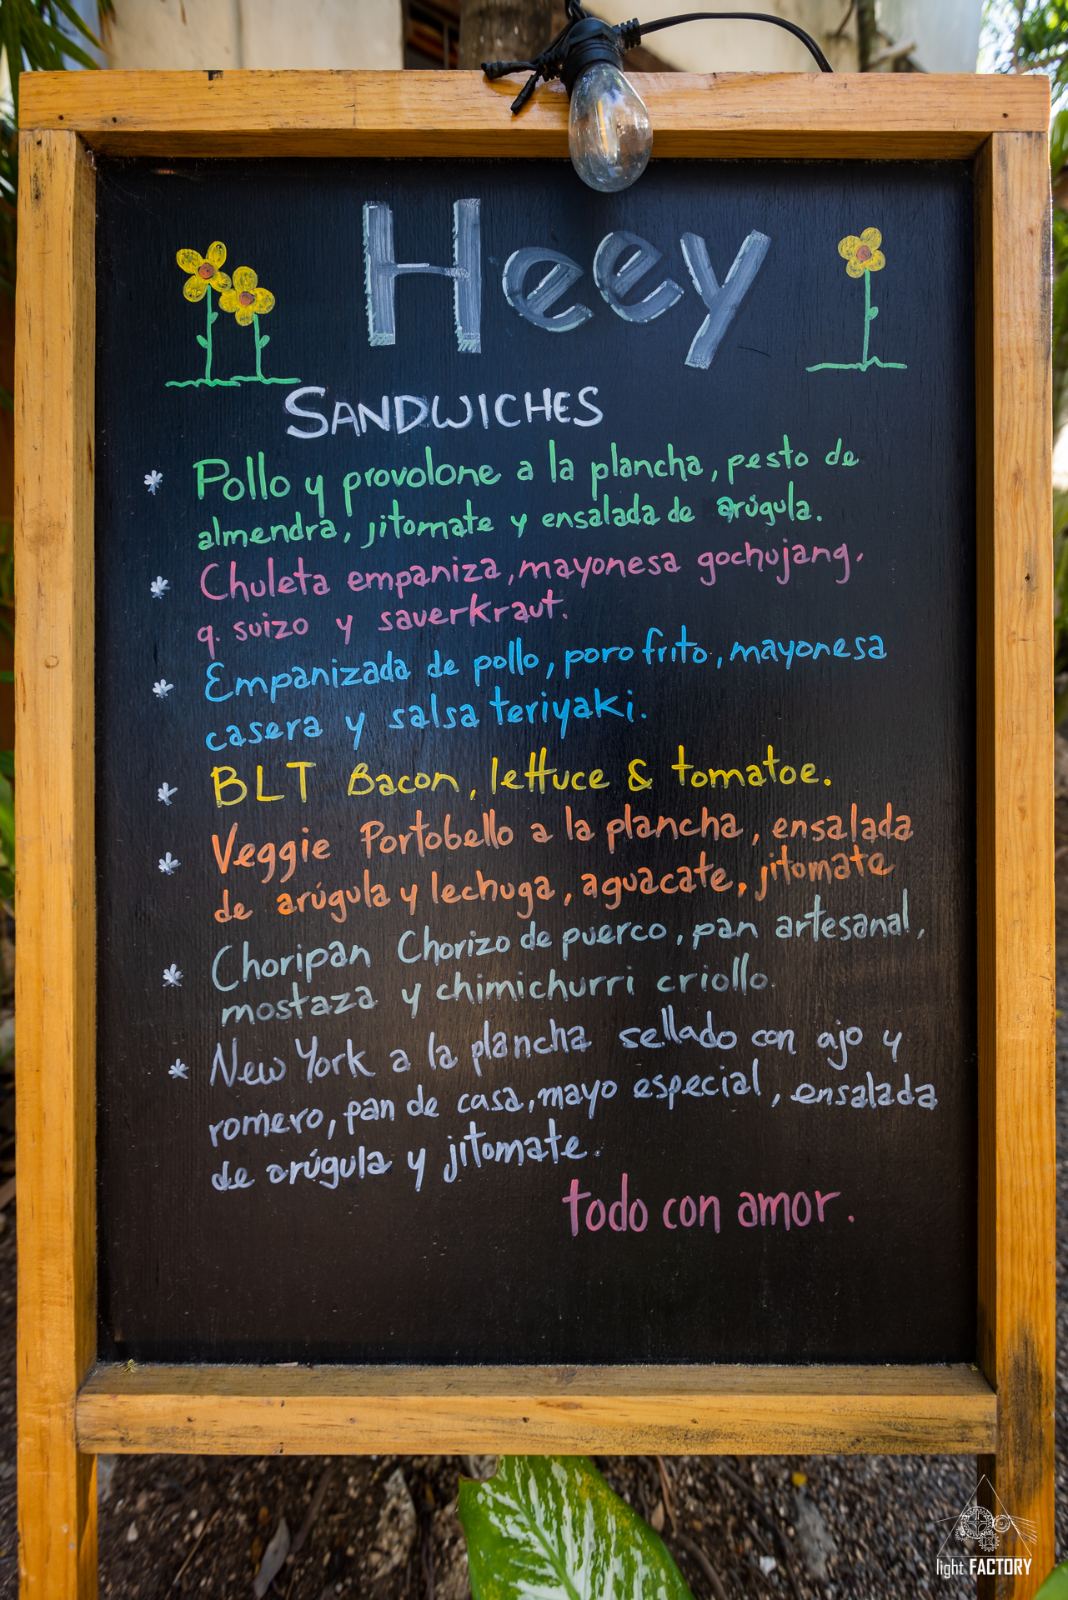 Heey
SANDWICHES
* Pollo y provolone a la plancha, pesto de
almendra, jitomate y ensalada de arúgula.
* Chuleta empaniza, mayonesa gochujang,
q. suizo y sauerkraut.
* Empanizada de pollo, poro frito, mayonesa
casera y salsa teriyaki.
* BLT Bacon, lettuce & tomatoe.
* Veggie Portobello a la plancha, ensalada
de arúgula y lechuga, aguacate, jitomate
* Choripan Chorizo de puerco, pan artesanal,
mostaza y chimichurri criollo.
* New York a la plancha sellado con ajo y
romero, pan de casa, mayo especial, ensalada
de arúgula y jitomate.
todo con amor.
light FACTORY